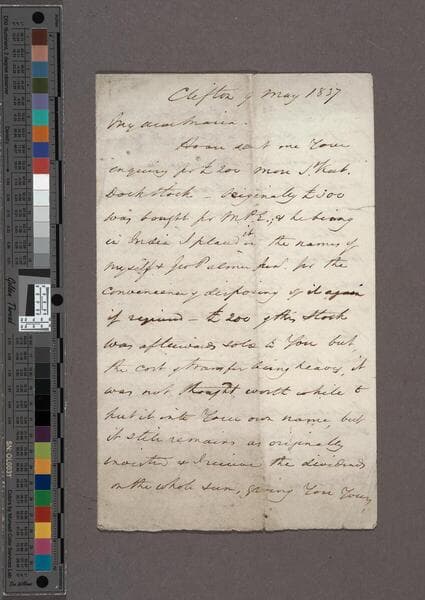 Clifton 9 May 1837
My dear Maria.
Hoare sent me Your
enquiry for £200 more St Kat.
Dock Stock - Originally £300
was bought for Mr P.E., & he being
in India I placed it in the names of
myself & Geo Palmer Jun. for the
conveniency of disposing of it again
if required - £200 of this Stock
was afterwards sold to You but
the cost of transfer being heavy, it
was not thought worth while to
put it into Your own name, but
it still remains as originally
invested & I receive the dividends
on the whole sum, giving You Yours,
Golden Thread
SN: OL0031